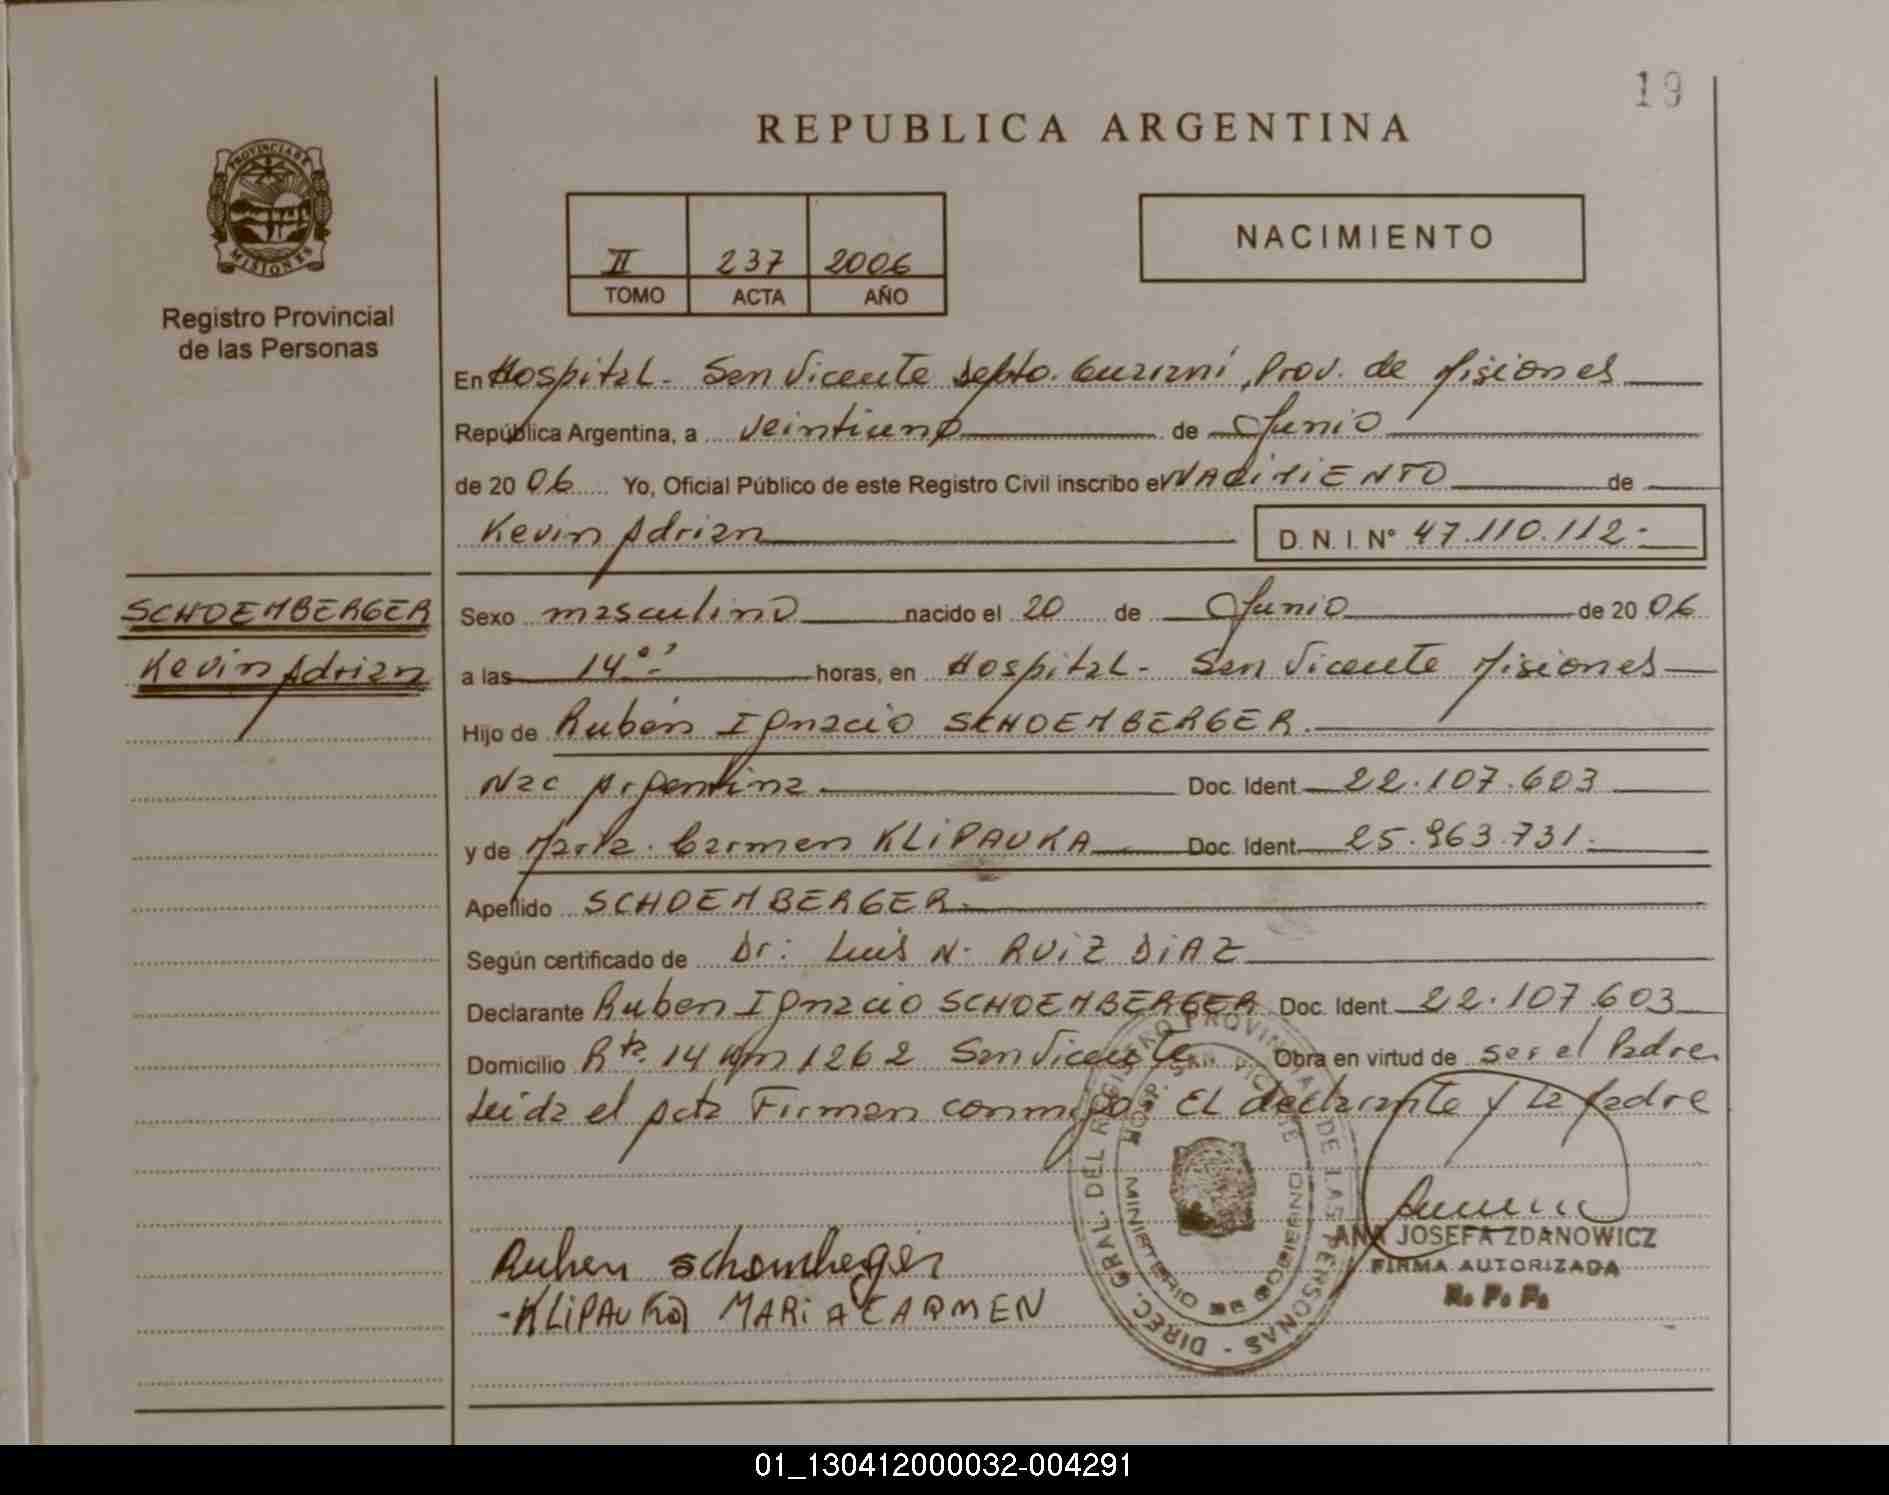 19
REPUBLICA ARGENTINA
PROVINCIA DE
MISIONES
Registro Provincial
de las Personas
II 237 2006
TOMO ACTA AÑO
NACIMIENTO
En Hospital - San Vicente Depto. Guaraní, Prov. de Misiones
República Argentina, a veintiuno de Junio
de 20 06 Yo, Oficial Público de este Registro Civil inscribo el NACIMIENTO de
Kevin Adrian D. N. I. N° 47.110.112.-
SCHOEMBERGER
Kevin Adrian
Sexo masculino nacido el 20 de Junio de 20 06
a las 14 horas, en Hospital - San Vicente Misiones
Hijo de Rubén Ignacio SCHOEMBERGER.
Nac Argentina Doc. Ident 22.107.603
y de María Carmen KLIPAUKA Doc. Ident 25.963.731.
Apellido SCHOEMBERGER
Según certificado de Dr: Luis N. RUIZ DIAZ
Declarante Ruben Ignacio SCHOEMBERGER Doc. Ident 22.107.603
Domicilio Rta. 14 Km 1262 San Vicente Obra en virtud de ser el Padre
Leida el acta Firman conmigo; El declarante y la Madre
DIREC. GRAL. DEL REGISTRO PROVINCIAL DE LAS PERSONAS
HOSP. SAN VICENTE
MINISTERIO DE GOBIERNO
Ruben schomberger
-KLIPAUKA MARIA CARMEN
ANA JOSEFA ZDANOWICZ
FIRMA AUTORIZADA
R. P. P.
01_130412000032-004291